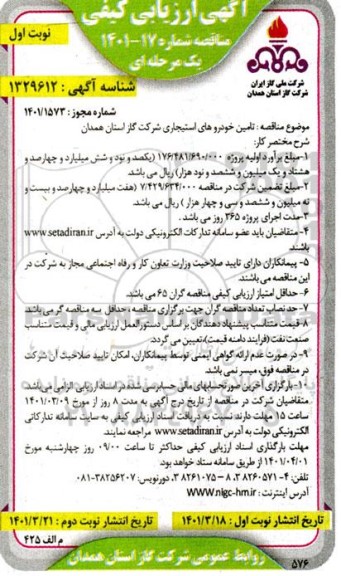 آگهی ارزیابی کیفی
مناقصه شماره ۱۷-۱۴۰۱
یک مرحله ای
نوبت اول
شرکت ملی گاز ایران
شرکت گاز استان همدان
شناسه آگهی : ۱۳۲۹۶۱۲
شماره مجوز : ۱۴۰۱/۱۵۷۳
موضوع مناقصه : تامین خودرو های استیجاری شرکت گاز استان همدان
شرح مختصر کار:
۱-مبلغ برآورد اولیه پروژه ۱۷۶/۴۸۱/۶۹۰/۰۰۰ (یکصد و نود و شش میلیارد و چهارصد و
هشتاد و یک میلیون و ششصد و نود هزار) ریال می باشد.
۲-مبلغ تضمین شرکت در مناقصه ۷/۴۲۹/۶۳۴/۰۰۰ (هفت میلیارد و چهارصد و بیست و
نه میلیون و ششصد و سی و چهار هزار ) ریال می باشد.
۳-مدت اجرای پروژه ۳۶۵ روز می باشد .
۴-متقاضیان باید عضو سامانه تدارکات الکترونیکی دولت به آدرس www.setadiran.ir
باشند.
۵- پیمانکاران دارای تایید صلاحیت وزارت تعاون کار و رفاه اجتماعی مجاز به شرکت در
این مناقصه می باشند.
۶- حداقل امتیاز ارزیابی کیفی مناقصه گران ۶۵ می باشد.
۷- حد نصاب تعداد مناقصه گران جهت برگزاری مناقصه ، حداقل سه مناقصه گر می باشد
۸-قیمت متناسب پیشنهاد دهندگان بر اساس دستورالعمل ارزیابی مالی و قیمت متناسب
صنعت نفت (فرآیند دامنه قیمت)، تعیین می گردد.
۹- در صورت عدم ارائه گواهی ایمنی توسط پیمانکاران، امکان تایید صلاحیت آن شرکت
در مناقصه فوق، میسر نمی باشد.
۱۰- بارگزاری آخرین صورتحسابهای مالی حسابرسی شده در اسناد ارزیابی الزامی می باشد.
متقاضیان شرکت در مناقصه از تاریخ درج آگهی به مدت ۸ روز از مورخ ۱۴۰۱/۰۳/۰۹
ساعت ۱۵ مهلت دارند نسبت به دریافت اسناد ارزیابی کیفی به سایت سامانه تدارکاتی
الکترونیکی دولت به آدرس www.setadiran.ir مراجعه نمایند.
مهلت بارگذاری اسناد ارزیابی کیفی حداکثر تا ساعت ۰۹/۰۰ روز چهارشنبه مورخ
۱۴۰۱/۰۴/۰۱ از طریق سامانه ستاد خواهد بود.
تلفن : ۴- ۳۸۲۶۰۵۷۱ ، ۸ - ۳۸۲۶۱۰۷۵ ، دورنویس : ۳۸۲۵۶۲۰۷-۰۸۱
آدرس اینترنت : WWW.nigc-hm.ir
تاریخ انتشار نوبت اول : ۱۴۰۱/۳/۱۸
تاریخ انتشار نوبت دوم : ۱۴۰۱/۳/۲۱
م الف ۴۲۵
روابط عمومی شرکت گاز استان همدان
۵۷۶